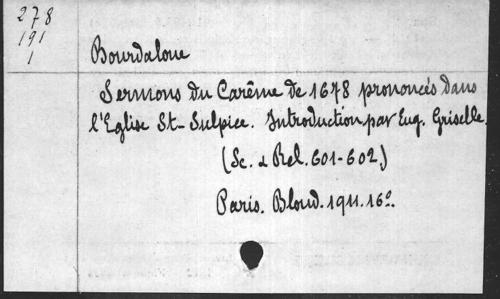 278
191
1
Bourdaloue
Sermons du Carême de 1678 prononcés dans
l'Eglise St-Sulpice. Introduction par Eug. Griselle.
(Sc. & Rel. 601-602)
Paris. Bloud. 1911. 16º.